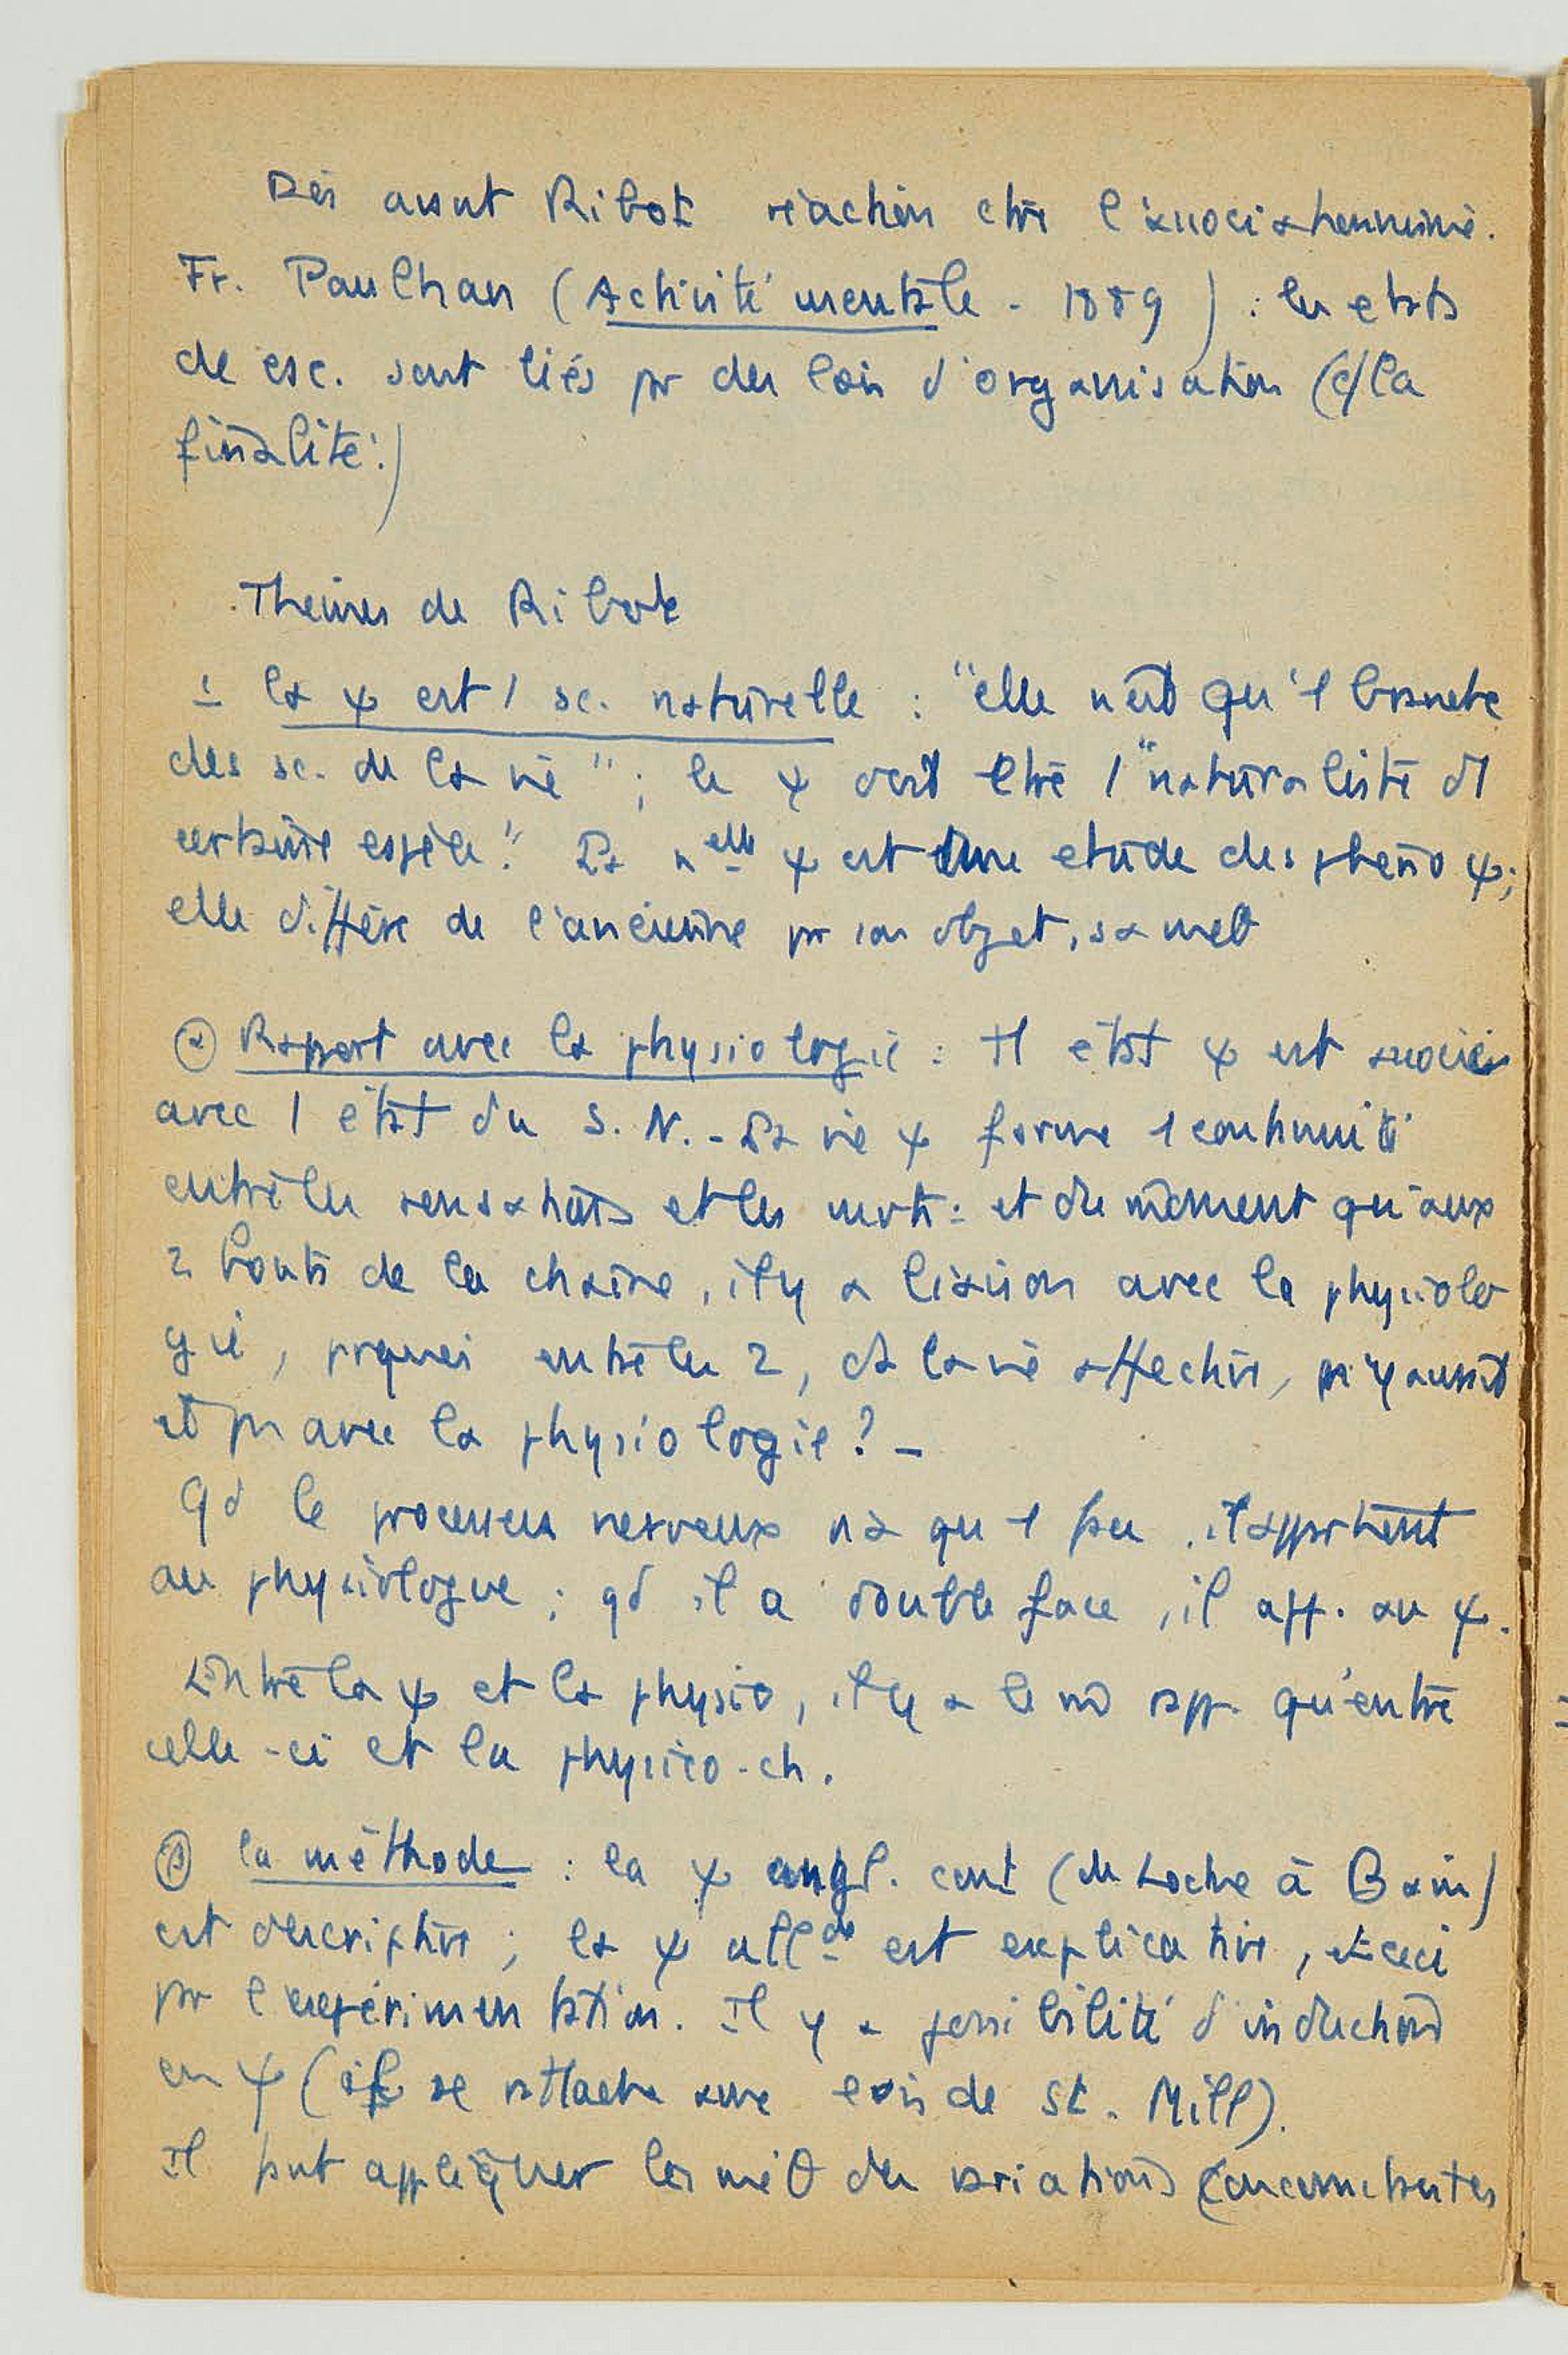 Dès avant Ribot réaction ctre l'associationnisme.
Fr. Paulhan (Activité mentale - 1889) : les etats
de csc. sont liés pr des lois d'organisation (c/ la
finalité.)
Thèmes de Ribot
1 la ψ est 1 sc. naturelle : "elle n'est qu'1 branche
des sc. de la vie" ; le ψ doit être 1 "naturaliste d'1
certaine espèce." La nelle ψ est une etude des phéno ψ;
elle diffère de l'ancienne pr son objet, sa
② Rapport avec la physiologie : Tt état ψ est associé
avec 1 état du S. N. - La vie ψ forme 1 continuité
entre les sensations et les mvts : et du moment qu'aux
2 bouts de la chaine, il y a liaison avec la physiolo
gie, prquoi entre les 2, ds la vie affective, n'y aurait
il pas avec la physiologie? -
Qd le processus nerveux n'a qu'1 face, il appartient
au physiologue ; qd il a double face, il app. au ψ.
Entre la ψ et la physio, il y a le m̂ rapp. qu'entre
celle-ci et la physico-ch.
③ la méthode : la ψ angl. cont (de Locke à Bain)
est descriptive ; la ψ allde est explicative, et ceci
pr l'expérimentation. Il y a possibilité d'inductions
en ψ (il se rattache aux lois de St. Mill).
Il faut appliquer les méθ des variations concomitantes